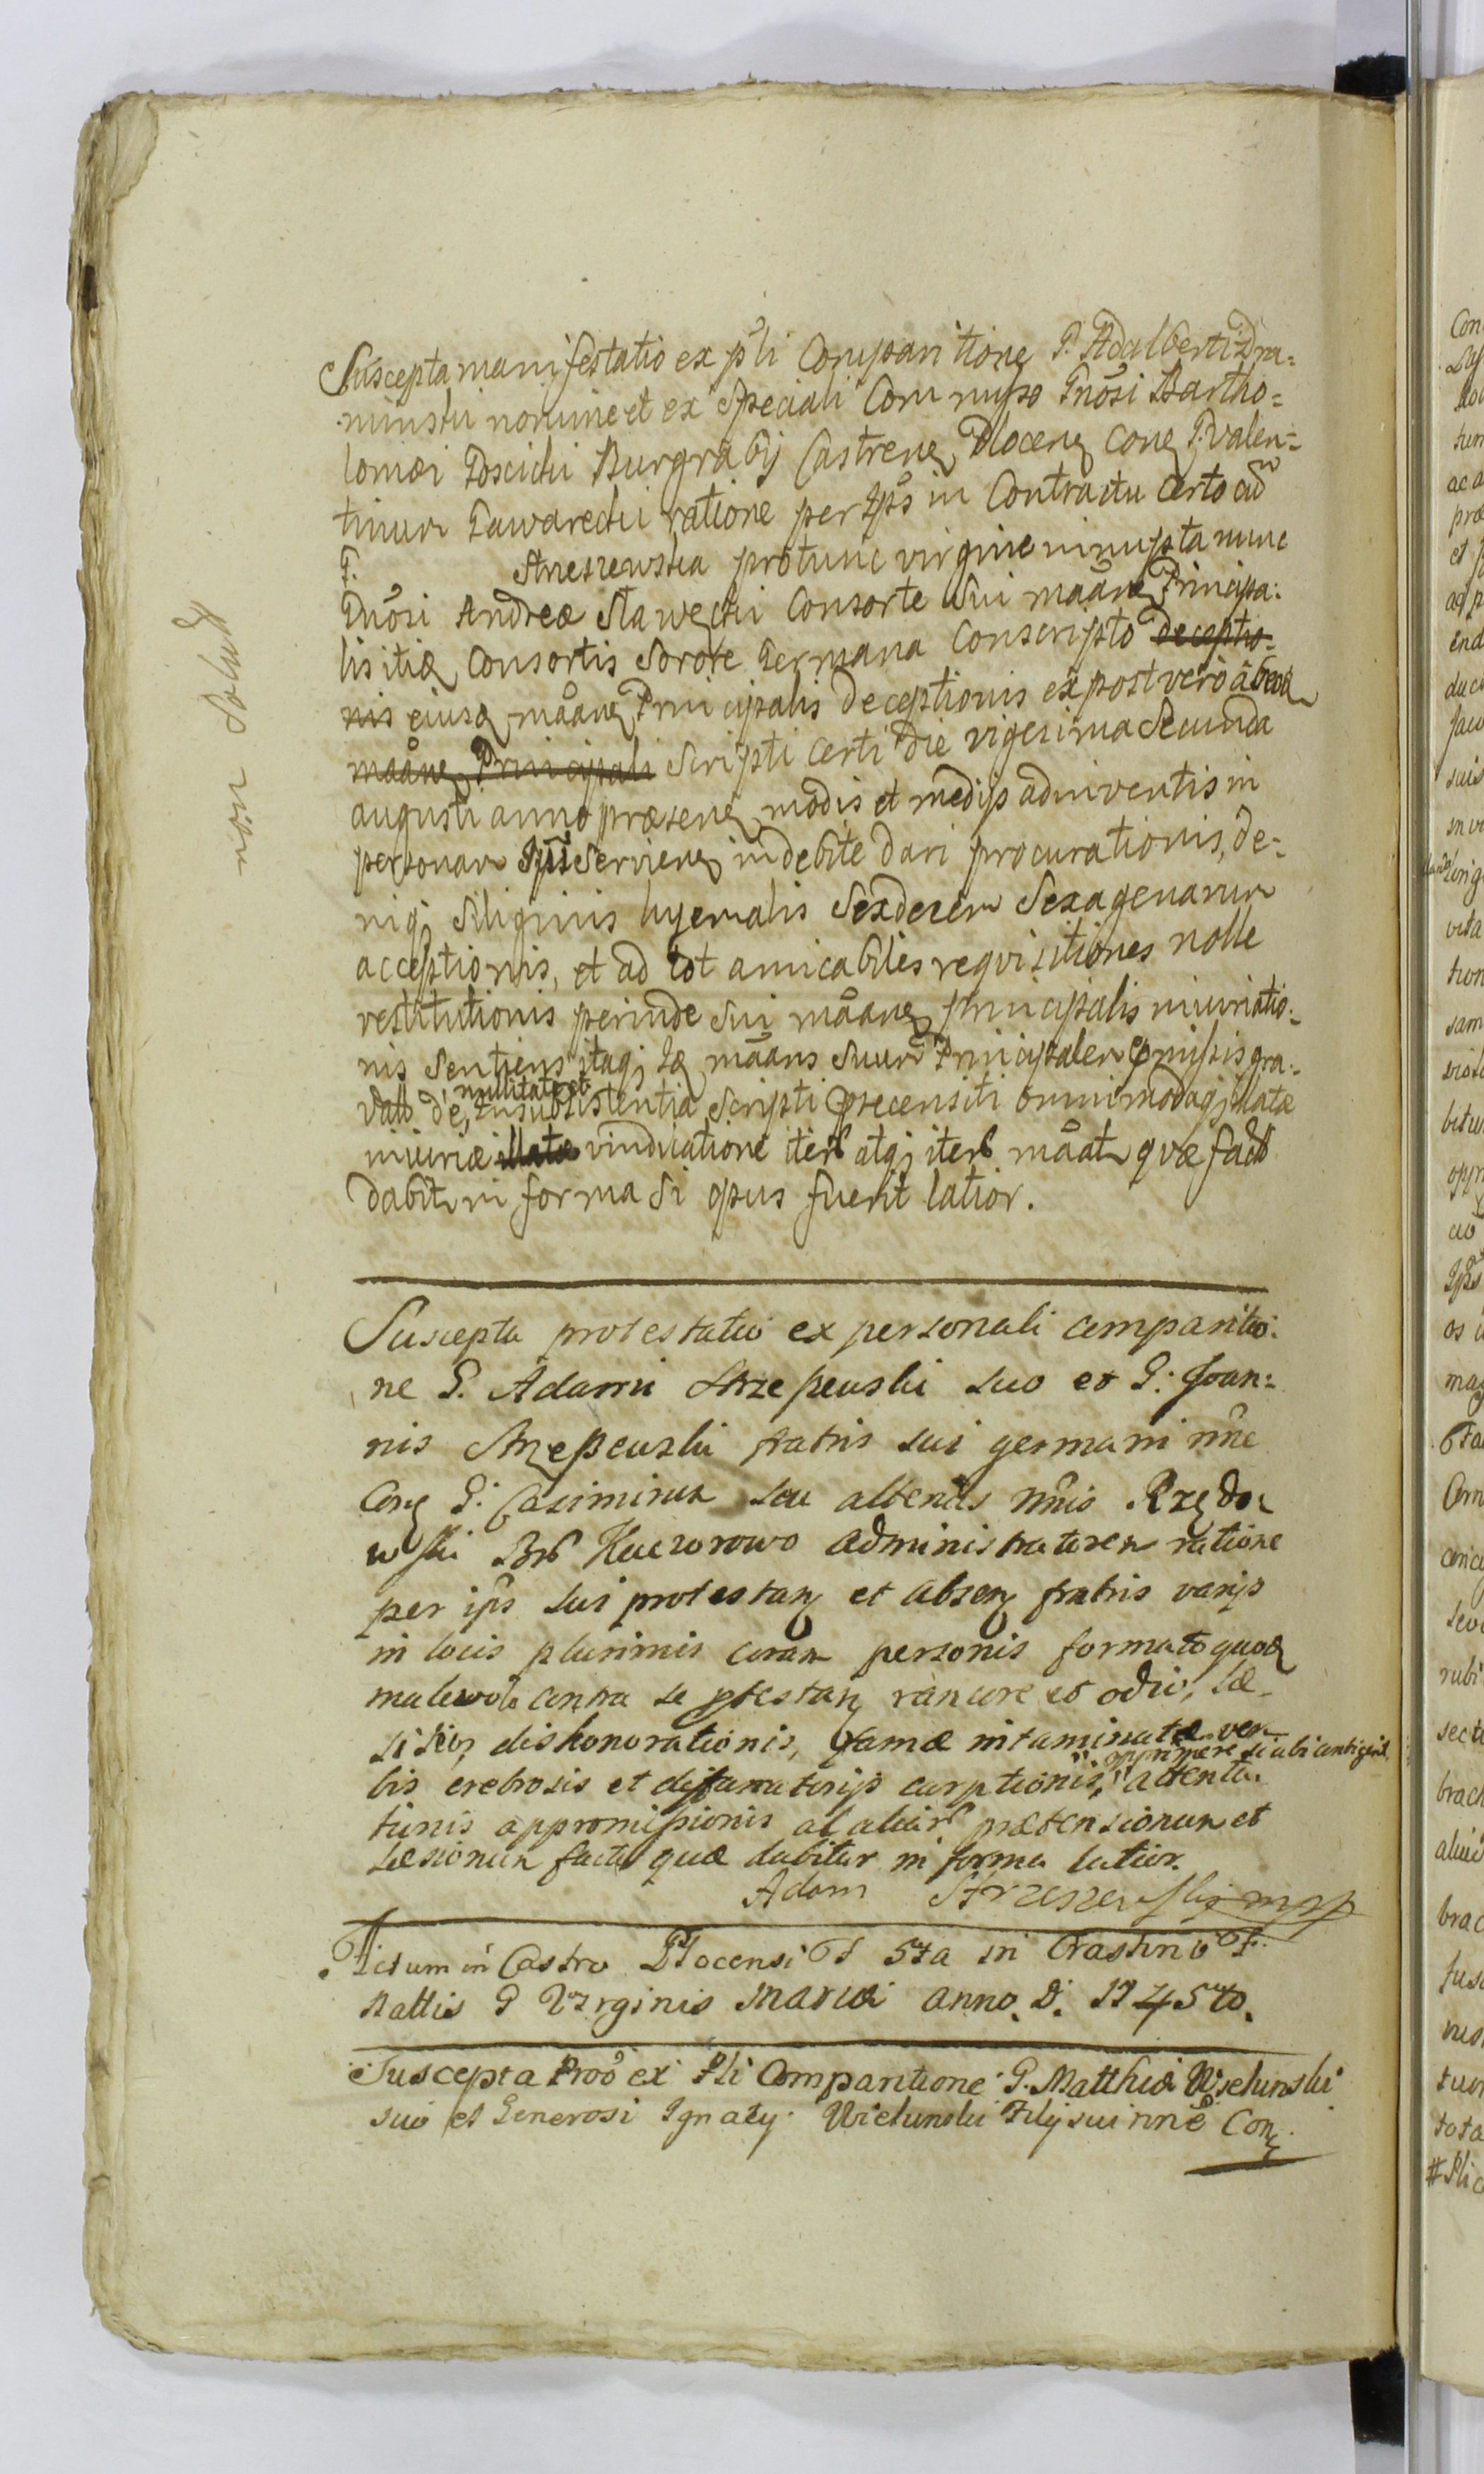 Suscepta manifestatio ex pśli Comparitione G. Adalberti Dra=
minski nomine et ex Speciali Commisso Gnosi Bartho=
lomæi Poscicki Burgrabij Castrens Plocens Cone G. Valen=
tinum Gawarecki ratione per Ips in Contractu Certo cu
G. Strzeszewska protunc virgine innupta nunc
Gnosi Andreæ Slawecki Consorte Sui maans Principa:
lis itiq Consortis Sorore Germana Conscripto deceptio=
nis eiusq maans Principalis deceptionis expost vero ab eodq
maans Principali Scripti Certi Die vigesima Secunda
augusti anno præsens modis et medijs adinventis in
personam Ipsi Serviens indebite dari procurationis, de=
niq; Siliginis hyemalis Sexdecim Sexagenarum
acceptionis, et ad tot amicabiles requisitiones nolle
restitutionis perinde Sui maans principalis iniuriatio:
nis Sentiens itaq; Is maans Suum Principalem Præmissis gra:
vatu de, nullitate et Insubsistentia Scripti Præcensiti omnimodaq; illatæ
iniuriæ illatæ vindicatione iterb atq; iterb maat quæ facta
dabitur in forma Si opus fuerit latior.
non Solvit
Suscepta protestatio ex personali comparitio:
ne G. Adami Strzeszewski suo et G: Joan=
nis Strzeszewski fratris sui germani nne
Cone G: Casimirum seu alterius nnis Rzędo=
wski Bb Kaczorowo administratorem ratione
per ips sui protestans et absens fratris varijs
in locis plurimis coram personis formato quoq
malevolo contra se ptestans rancore et odio, læ=
sisios, dishonorationis, famæ intaminatæ ver
bis crebrosis et diffamatorijs carptionis, opprimere si ubi contigerit attenta.
tionis appromissionis al aliarb prætensionum et
læsionum facta quæ dabitur in forma latior.
Adam Strzeszewski mpp
Actum in Castro Plocensi F 5ta in Crastino F.
Nattis G Virginis Mariæ anno. D. 1745to.
Suscepta Pro ex Pli Comparitione G. Matthiæ Wielunski
suo et Generosi Ignaty Wielunski Filij sui nne Con